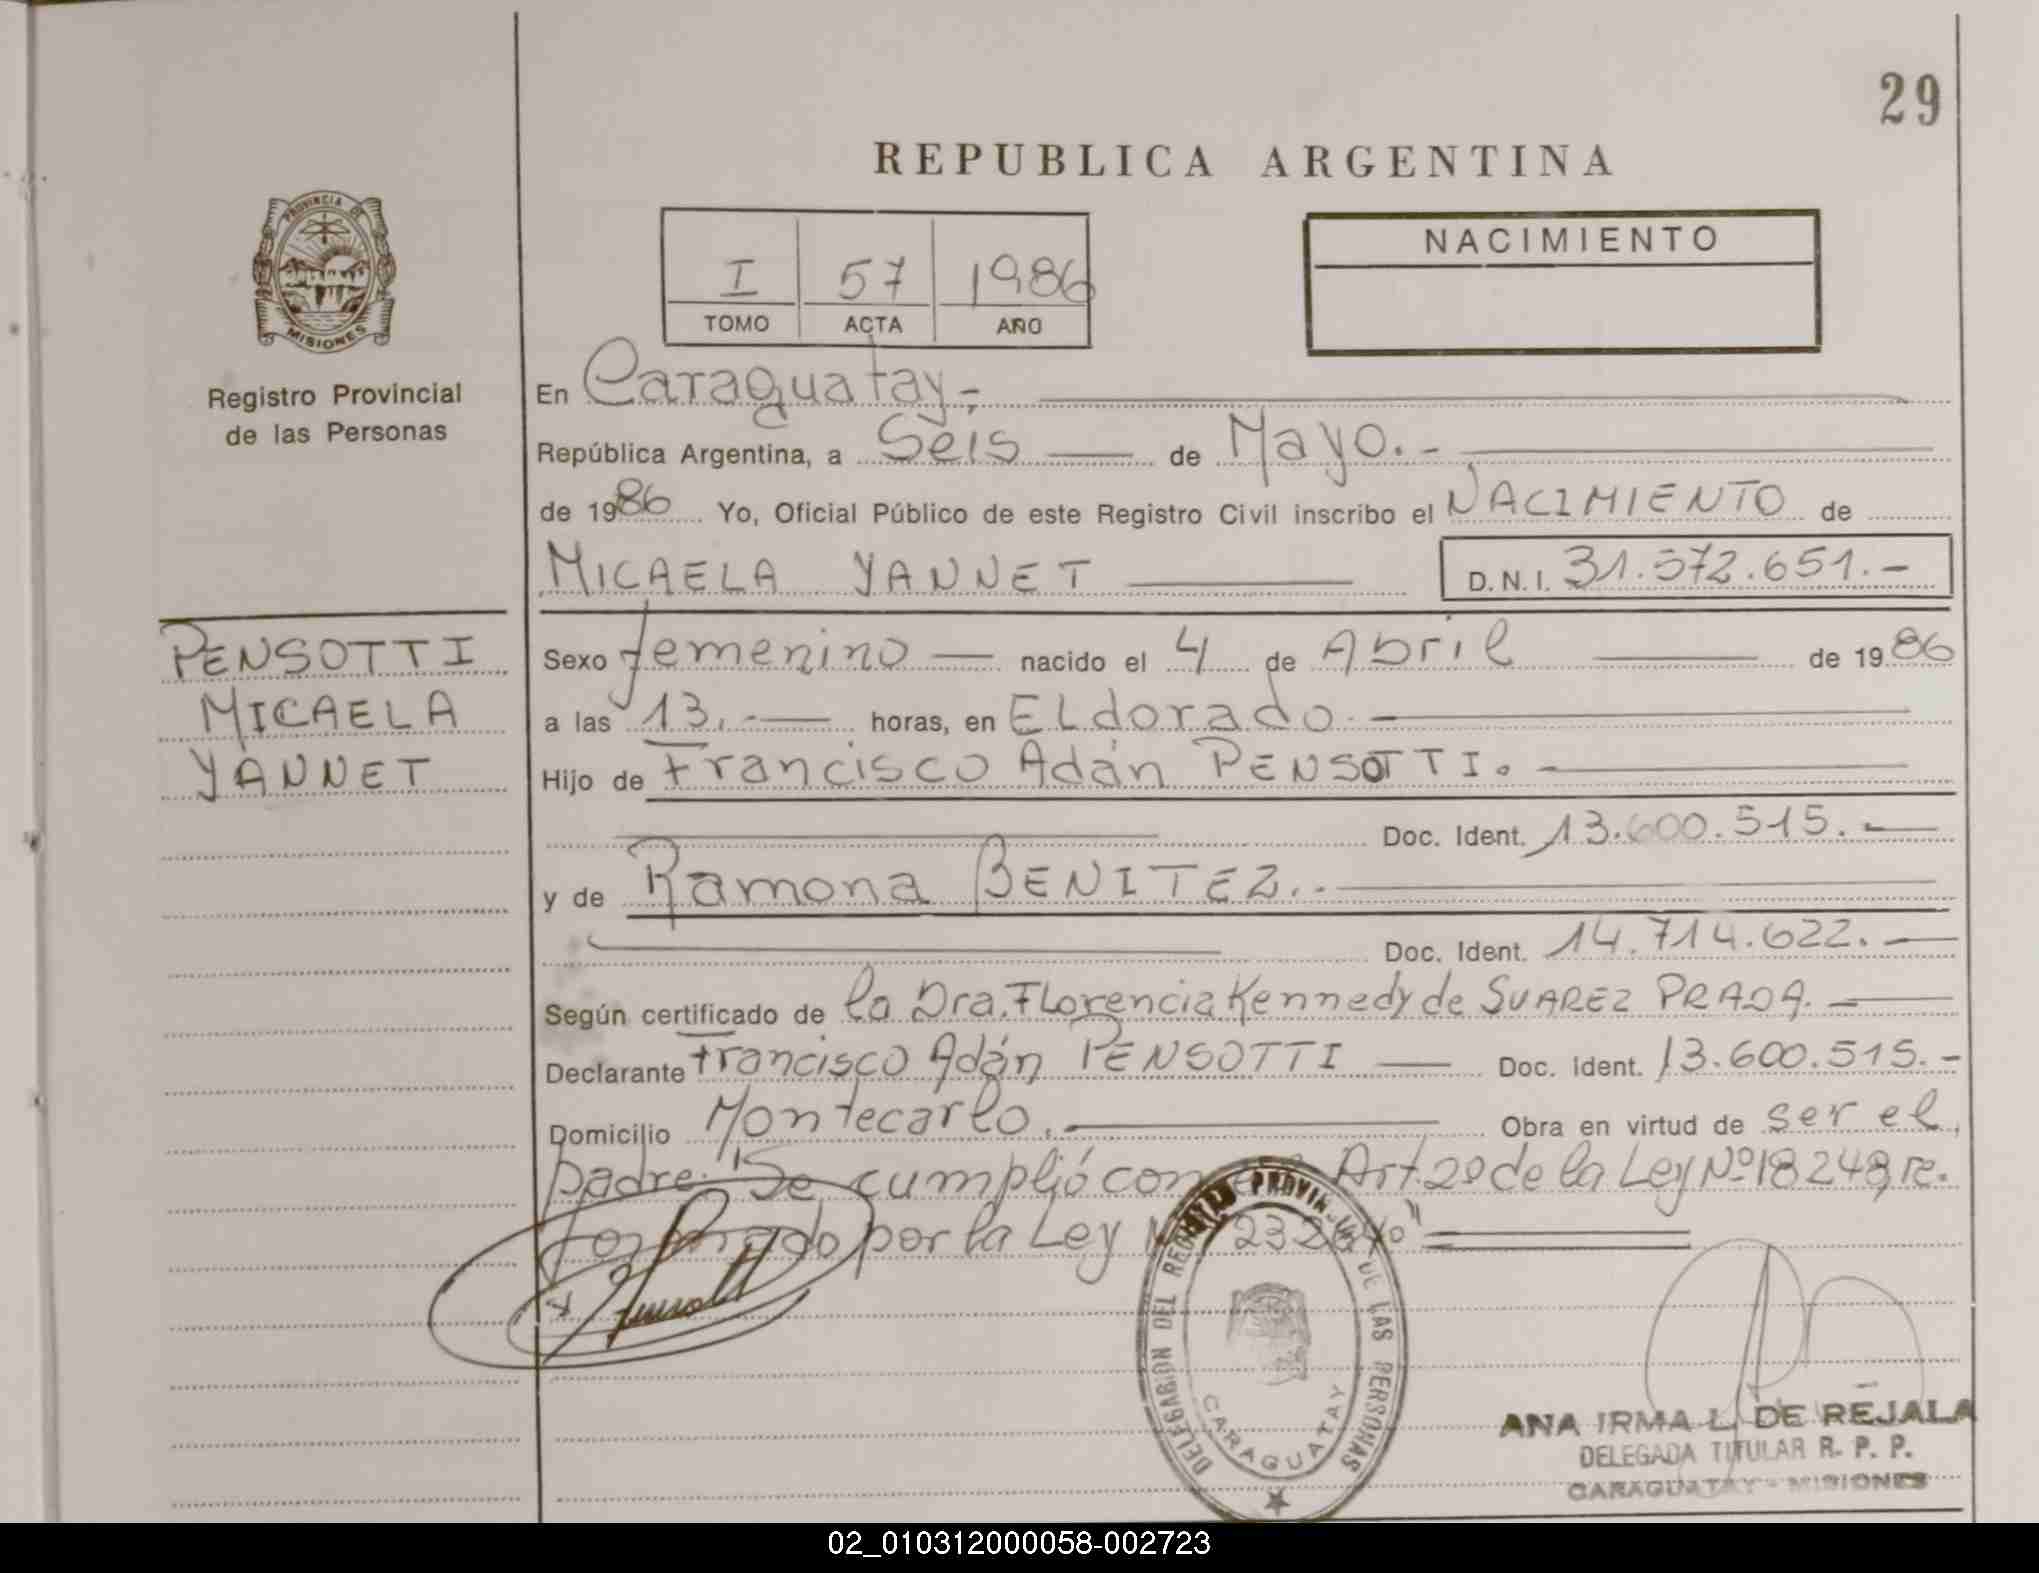 29
REPUBLICA ARGENTINA
PROVINCIA DE
MISIONES
Registro Provincial
de las Personas
I 57 1986
TOMO ACTA AÑO
NACIMIENTO
En Caraguatay.-
República Argentina, a Seis de Mayo.-
de 1986 Yo, Oficial Público de este Registro Civil inscribo el NACIMIENTO de
MICAELA YANNET D.N.I. 31.572.651.-
PENSOTTI
MICAELA
YANNET
Sexo femenino nacido el 4 de Abril de 1986
a las 13.- horas, en ELdorado.-
Hijo de Francisco Adán PENSOTTI.-
Doc. Ident. 13.600.515.-
y de Ramona BENITEZ.-
Doc. Ident. 14.714.622.-
Según certificado de la Dra. FLorencia Kennedy de SUAREZ PRADA.-
Declarante Francisco Adán PENSOTTI Doc. Ident. 13.600.515.-
Domicilio Montecarlo. Obra en virtud de ser el
padre. "Se cumplió con Art. 2º de la Ley Nº 18248, re.
formado por la Ley
DELEGACION DEL REGISTRO PROVINCIAL DE LAS PERSONAS
CARAGUATAY
ANA IRMA L. DE REJALA
DELEGADA TITULAR R. P. P.
CARAGUATAY - MISIONES
02_010312000058-002723